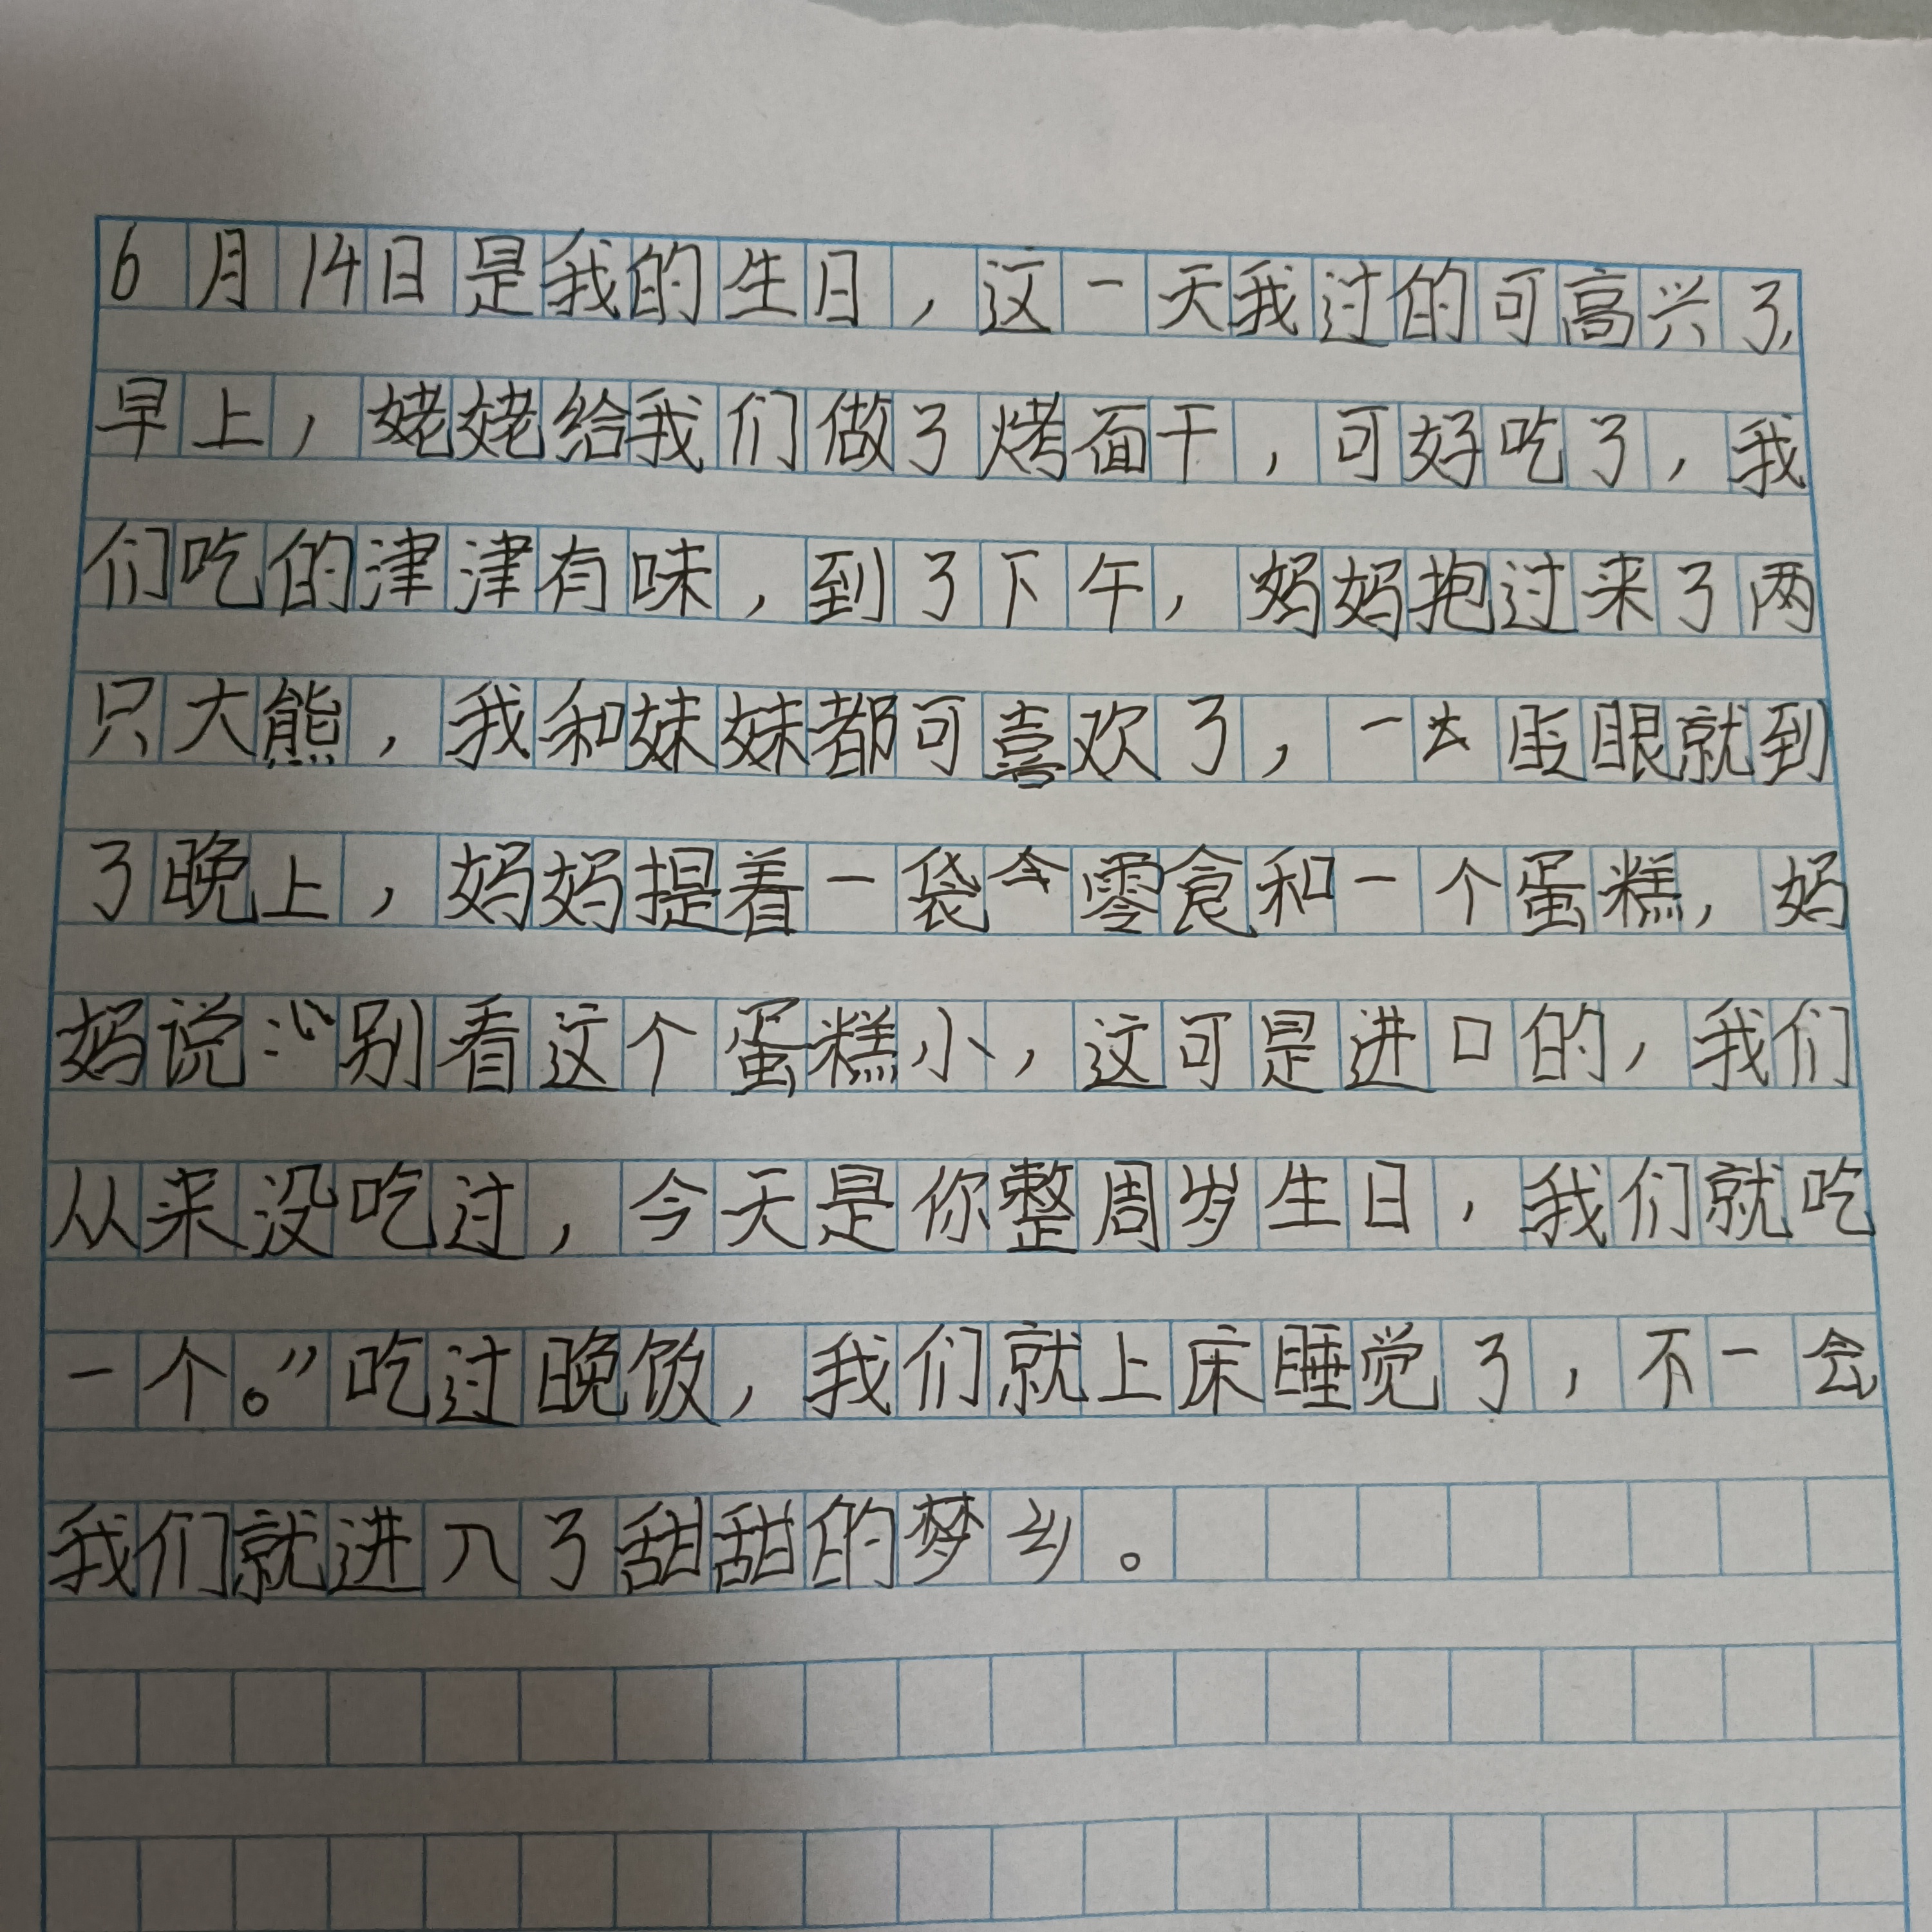 6月14日是我的生日，这一天我过的可高兴了，
早上，姥姥给我们做了烤面干，可好吃了，我
们吃的津津有味，到了下午，妈妈抱过来了两
只大熊，我和妹妹都可喜欢了，一去眨眼就到
了晚上，妈妈提着一袋今零食和一个蛋糕，妈
妈说：“别看这个蛋糕小，这可是进口的，我们
从来没吃过，今天是你整周岁生日，我们就吃
一个。”吃过晚饭，我们就上床睡觉了，不一会
我们就进入了甜甜的梦乡。